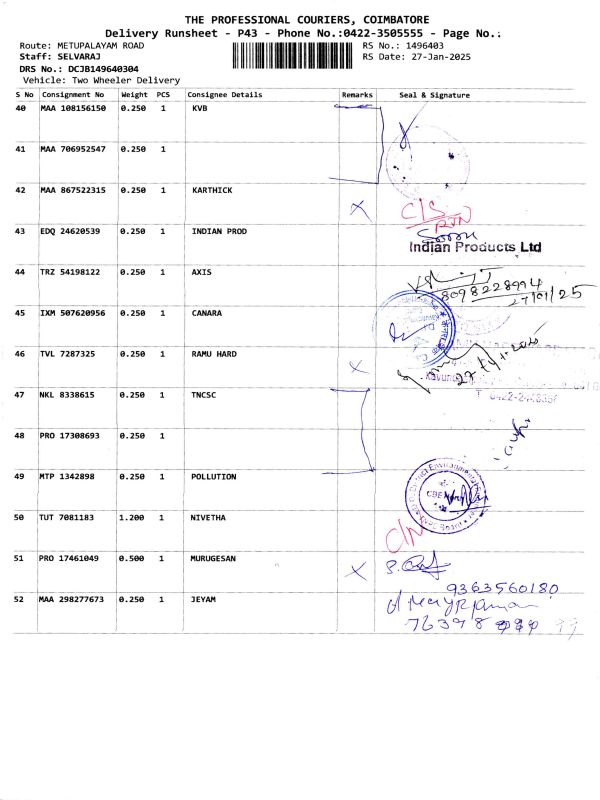 THE PROFESSIONAL COURIERS, COIMBATORE
Delivery Runsheet - P43 - Phone No.:0422-3505555 - Page No.:
Route: METUPALAYAM ROAD RS No.: 1496403
Staff: SELVARAJ RS Date: 27-Jan-2025
DRS No.: DCJB149640304
Vehicle: Two Wheeler Delivery
S No Consignment No Weight PCS Consignee Details Remarks Seal & Signature
40 MAA 108156150 0.250 1 KVB
41 MAA 706952547 0.250 1
42 MAA 867522315 0.250 1 KARTHICK X
C/S
RTN
43 EDQ 24620539 0.250 1 INDIAN PROD
Indian Products Ltd
44 TRZ 54198122 0.250 1 AXIS
8098228994
27/01/25
45 IXM 507620956 0.250 1 CANARA
46 TVL 7287325 0.250 1 RAMU HARD X
47 NKL 8338615 0.250 1 TNCSC
48 PRO 17308693 0.250 1
49 MTP 1342898 0.250 1 POLLUTION
50 TUT 7081183 1.200 1 NIVETHA
51 PRO 17461049 0.500 1 MURUGESAN X
9363560180
52 MAA 298277673 0.250 1 JEYAM